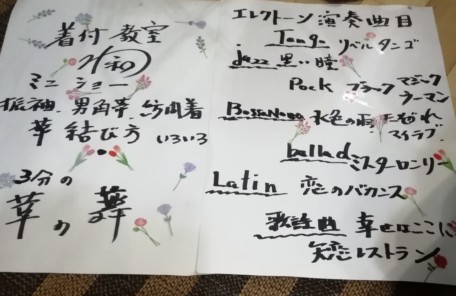 着付教室
ミニショー
振袖.男角帯.訪問着
帯結び方 いろいろ
3分の
エレクトーン演奏曲目
Tango リベルタンゴ
jazz 黒い瞳
Rock ブラックマジック
ウーマン
BossaNova 水色の雨 そぞれ
マイラブ
ballad ミスターロンリー
Latin 恋のバカンス
歌謡曲 幸せはここに
失恋レストラン